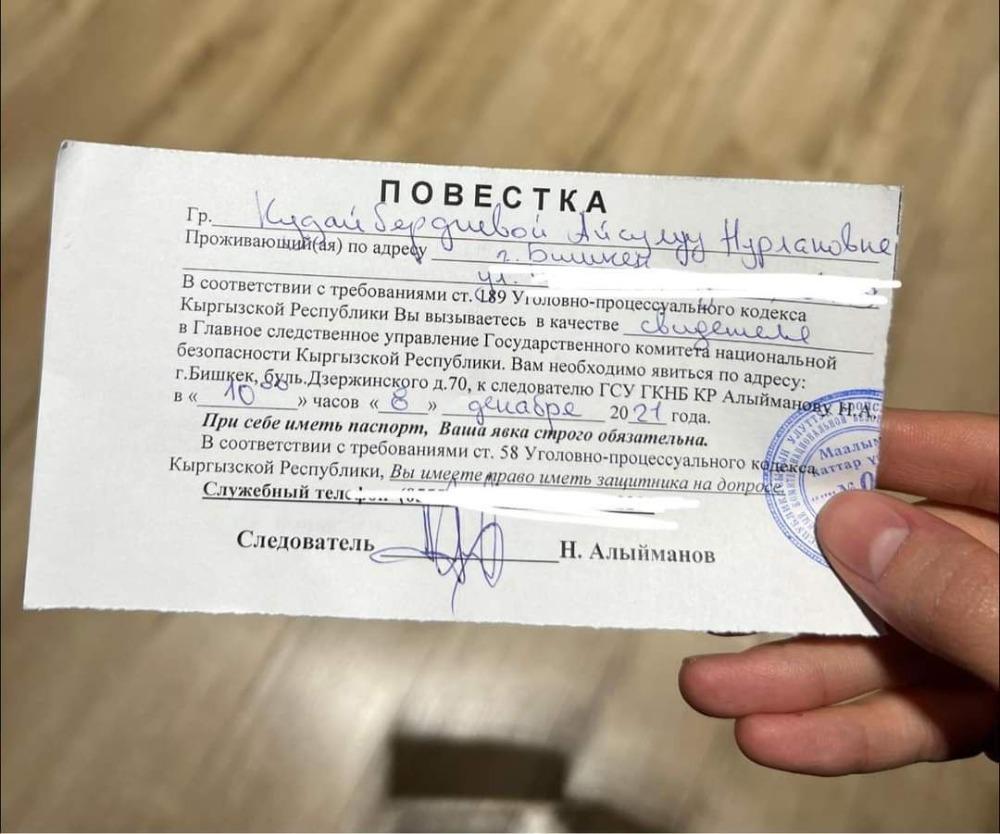 ПОВЕСТКА
Гр. Кудайбердиевой Айсулуу Нурлановне
Проживающий(ая) по адресу г. Бишкек
ул.
В соответствии с требованиями ст. 189 Уголовно-процессуального кодекса
Кыргызской Республики Вы вызываетесь в качестве свидетеля
в Главное следственное управление Государственного комитета национальной
безопасности Кыргызской Республики. Вам необходимо явиться по адресу:
г.Бишкек, буль.Дзержинского д.70, к следователю ГСУ ГКНБ КР Алыйманову Н.А.
в «10 00» часов «8» декабря 2021 года.
При себе иметь паспорт, Ваша явка строго обязательна.
В соответствии с требованиями ст. 58 Уголовно-процессуального кодекса
Кыргызской Республики, Вы имеете право иметь защитника на допросе
Служебный
Следователь Н. Алыйманов
Маалым
каттар
№ 0